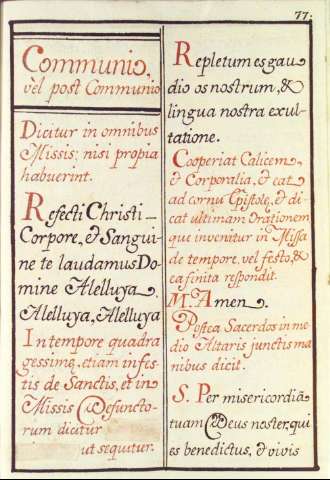 77.
Communio,
vèl post Communio
Dicitur in omnibus
Missis; nisi propia
habuerint.
Refecti Christi
Corpore, & Sangui-
ne te laudamus Do-
mine Alelluya
Alelluya, Alelluya
In tempore quadra
gessimę, etiam in fes-
tis de Sanctis, et in
Missis Defuncto-
rum dicitur
ut sequitur.
Repletum es gau
dio os nostrum, &
lingua nostra exul-
tatione.
Cooperiat Calicem,
& Corporalia, & eat
ad cornu Epistolę, & di-
cat ultimam Orationem
que invenitur in Missa
de tempore, vel festo, &
ea finita respondit
M. Amen.
Postea Sacerdos in me
dio Altaris junctis ma
nibus dicit.
S. Per misericordiã
tuam Deus noster, qui
es benedictus, & vivis